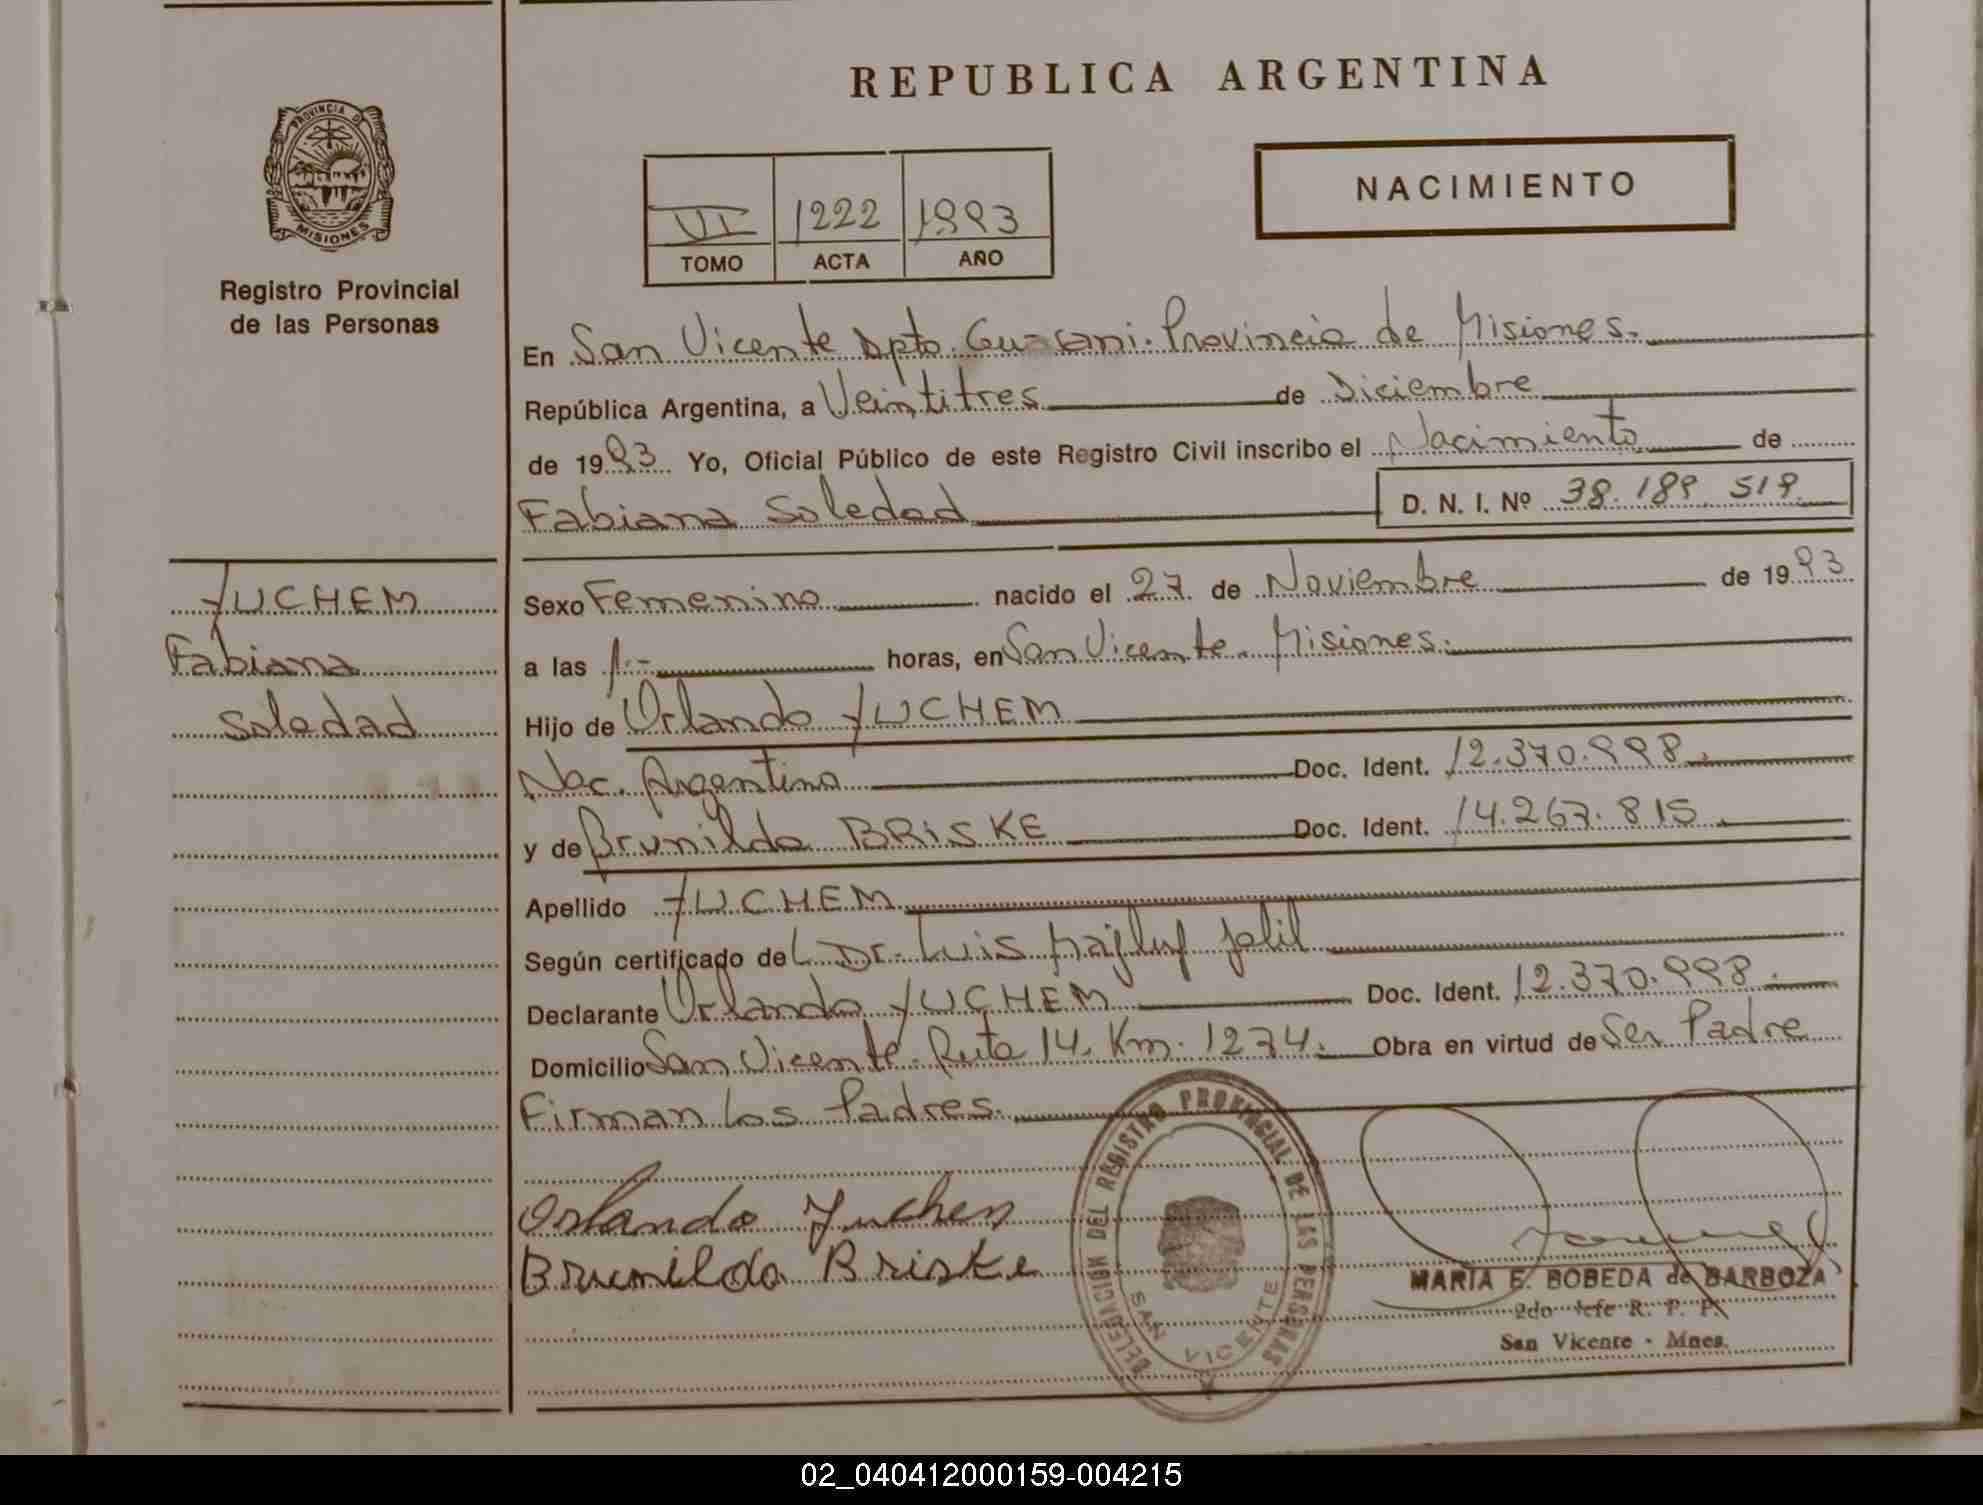 REPUBLICA ARGENTINA
PROVINCIA DE
MISIONES
Registro Provincial
de las Personas
NACIMIENTO
VI 1222 1993
TOMO ACTA AÑO
En San Vicente Dpto. Guarani. Provincia de Misiones.
República Argentina, a Veintitres de Diciembre
de 1993 Yo, Oficial Público de este Registro Civil inscribo el Nacimiento de
Fabiana Soledad D. N. I. Nº 38.189.519
YUCHEM
Fabiana
Soledad
Sexo Femenino nacido el 27 de Noviembre de 1993
a las 1.- horas, en San Vicente. Misiones.
Hijo de Orlando YUCHEM
Nac. Argentina Doc. Ident. 12.370.998.
y de Brunilda BRiSKE Doc. Ident. 14.267.815
Apellido YUCHEM
Según certificado del Dr. Luis Jalil
Declarante Orlando YUCHEM Doc. Ident. 12.370.998.
Domicilio San Vicente. Ruta 14. Km. 1274. Obra en virtud de Ser Padre
Firman Los Padres.
Orlando Yuchem
Brunilda Briske
DELEGACION DEL REGISTRO PROVINCIAL DE LAS PERSONAS
SAN VICENTE
MARIA E. BOBEDA de BARBOZA
2do Jefe R. P. P.
San Vicente - Mnes.
02_040412000159-004215